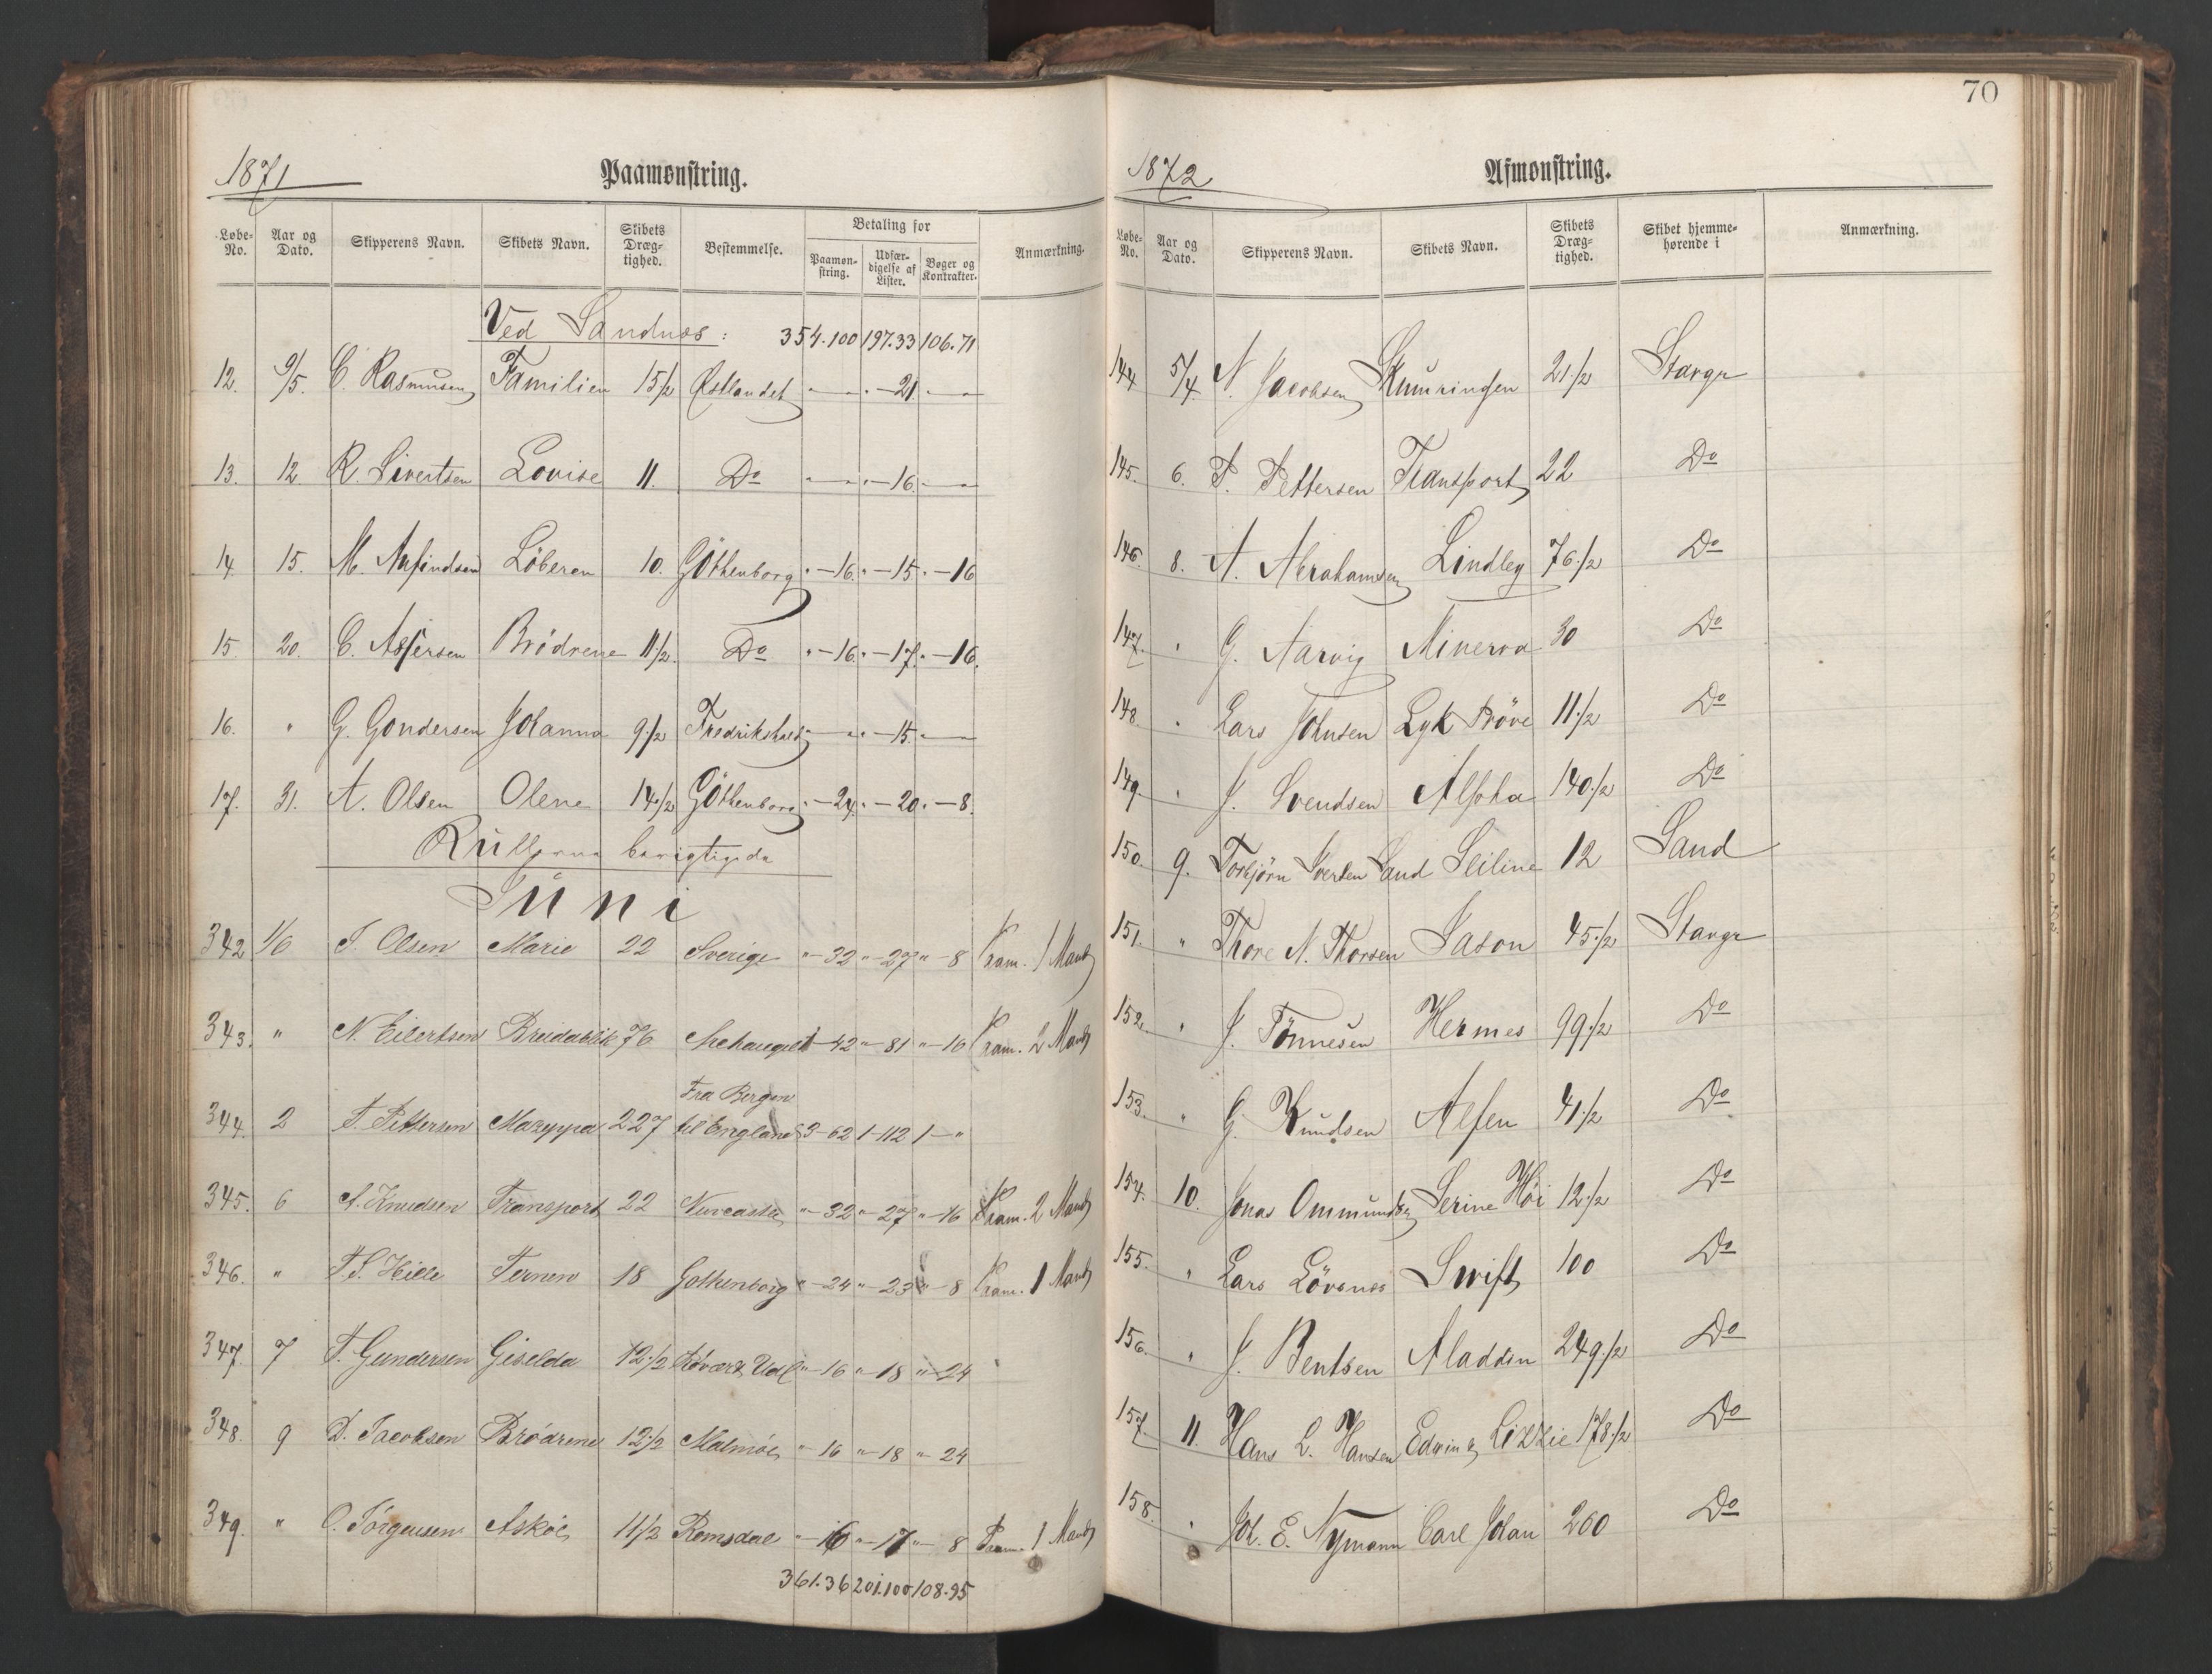 1871 Paamønstring.
Løbe-No. Aar og Dato. Skipperens Navn. Skibets Navn. Skibets Dræg-tighed. Bestemmelse. Betaling for Paamøn-string. Udfær-digelse af Lister. Bøger og Kontrakter. Anmærkning.
Ved Sandnæs: 354.100 197.33 106.71
12. 9/5. C. Rasmusen Familien 15 1/2 Østlandet " — " " — 21 " — "
13. 12. R. Sivertsen Lovise 11. Do " — " " — 16 " — "
14. 15. M. Arfindsen Löberen 10. Göthenborg " — 16. " — 15 " — 16
15 20. C. Assersen Brödrene 11 1/2. Do " — 16. " — 17. " — 16.
16. " G. Gondersen Johanna 9 1/2 Fredrikshald " — " " — 15. " — "
17. 31. A. Olsen Olene 14 1/2 Göthenborg " — 24. " — 20. " — 8.
Rullerne berigtigede
Juni
342 1/6 T. Olsen Marie 22 Sverige " — 32 " — 27 " — 8 Kram. 1 Mand
343. " N. Eilertsen Breidablik 76 Archangel 1 — 42 " — 81 " — 16 Kram. 2 Mand
Fra Bergen
344. 2 T. Pettersen Mazyppa 227 til England 3 — 62 1 — 112 1 — "
345. 6 A. Knudsen Transport 22 Newcastle " — 32 " — 27 " — 16 Kram. 2 Mand
346. " T. S. Heile Ternen 18 Gothenborg " — 24 " — 23 " — 8 Kram. 1 Mand
347. 7 T. Gundersen Giselda 12 1/2 Röværk Udl " — 16 " — 18 " — 24
348. 9 D. Jacobsen Brödrene 12 1/2 Malmöe " — 16 " — 18 " — 24
349. " O. Törgensen Asköe 11 1/2 Romsdal " — 16 " — 17 " — 8 Kram. 1 Mand
361.36 201.100 108.95
70
1872 Afmønstring.
Løbe-No. Aar og Dato. Skipperens Navn. Skibets Navn. Skibets Dræg-tighed. Skibet hjemme-hørende i Anmærkning.
144 5/4. N. Jacobsen Kumringen 21 1/2 Stavgr
145. 6. P. Pettersen Transport 22 Do
146. 8. A. Abrahamsen Lindley 76 1/2 Do
147. " G. Aarvig Minerva 30 Do
148. " Lars Johnsen Lyk Pröve 11 1/2 Do
149. " J. Svendsen Alpha 140 1/2 Do
150. 9. Torbjörn Iversen Sand Seiline 12 Sand
151. " Thore N. Thorsen Jason 45 1/2 Stavgr
152. " J. Tönnesen Hermes 99 1/2 Do
153. " G. Knudsen Alfen 41 1/2 Do
154. 10. Jonas Ommundsen Serine Höi 12 1/2 Do
155. " Lars Lövenes Swift 100 Do
156. " J. Bentsen Aladdin 249 1/2 Do
157. 11. Hans L. Hansen Edwin & Lizzie 178 1/2 Do
158. " Joh. E. Nymann Carl Johan 260 Do